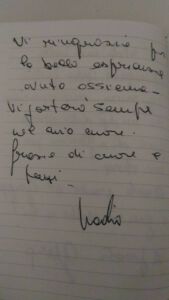 Vi ringrazio per
la bella esperienza
avuto assieme.
Vi porterò sempre
nel mio cuore.
Grazie di cuore e